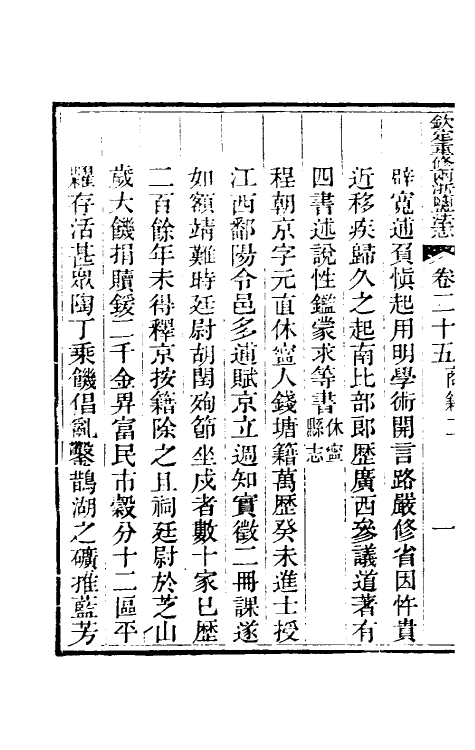 欽定重修兩浙鹽法志 卷二十五 商籍二 一
辟寬逋負慎起用明學術開言路嚴修省因忤貴
近移疾歸久之起南比部郎歷廣西參議道著有
四書述說性鑑蒙求等書休寧縣志
程朝京字元直休寧人錢塘籍萬歷癸未進士授
江西鄱陽令邑多逋賦京立週知實徵二冊課遂
如額靖難時廷尉胡閏殉節坐戍者數十家已歷
二百餘年未得釋京按籍除之且祠廷尉於芝山
歲大饑捐贖鍰二千金畀富民市穀分十二區平
糶存活甚眾陶丁乘饑倡亂鑿鵲湖之礦推藍芳